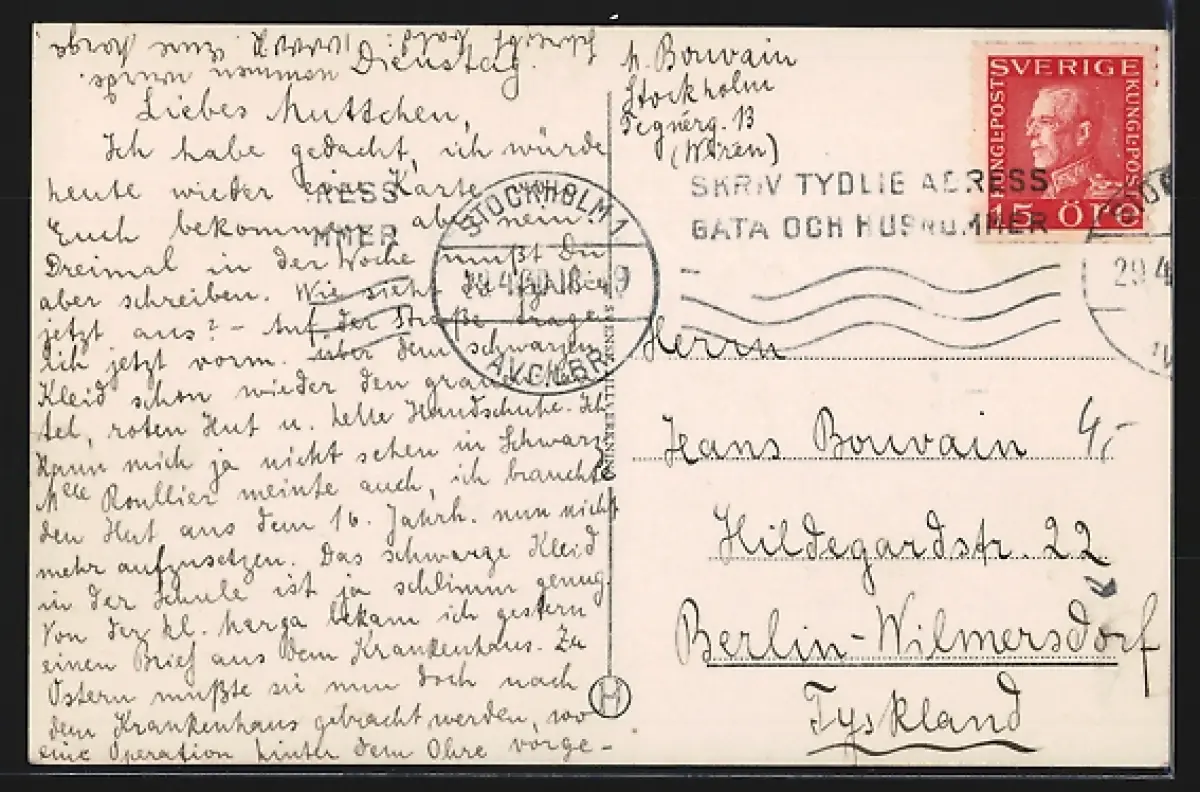 Dienstag.
Liebes Muttchen,
Ich habe gedacht, ich würde
heute wieder eine Karte von
Euch bekommen, aber nein
Dreimal in der Woche mußt Du
aber schreiben. Wie sieht
jetzt aus? – Auf der Straße trage
ich jetzt vorm. über dem schwarzen
Kleid schon wieder den grauen Man-
tel, roten Hut u. helle Handschuhe. Ich
kann mich ja nicht sehen in Schwarz.
Melle Roullier meinte auch, ich brauchte
den Hut aus dem 16. Jahrh. nun nicht
mehr aufzusetzen. Das schwarze Kleid
in der Schule ist ja schlimm genug.
Von der kl. Marga bekam ich gestern
einen Brief aus dem Krankenhaus. Zu
Ostern mußte sie nun doch nach
dem Krankenhaus gebracht werden, wo
eine Operation hinter dem Ohre vorge-
nommen wurde.
M. Bouvain
Stockholm
Tegnérg. 13
(Wirén)
SVERIGE
KUNGL: POST
KUNGL: POST
15 ÖRE
SKRIV TYDLIG ADRESS
GATA OCH HUSNUMMER
RESS
MMER
STOCKHOLM 1
AVG. LBR
29 4
Herrn
Hans Bouvain
4,-
Hildegardstr. 22
Berlin-Wilmersdorf
Tyskland
H